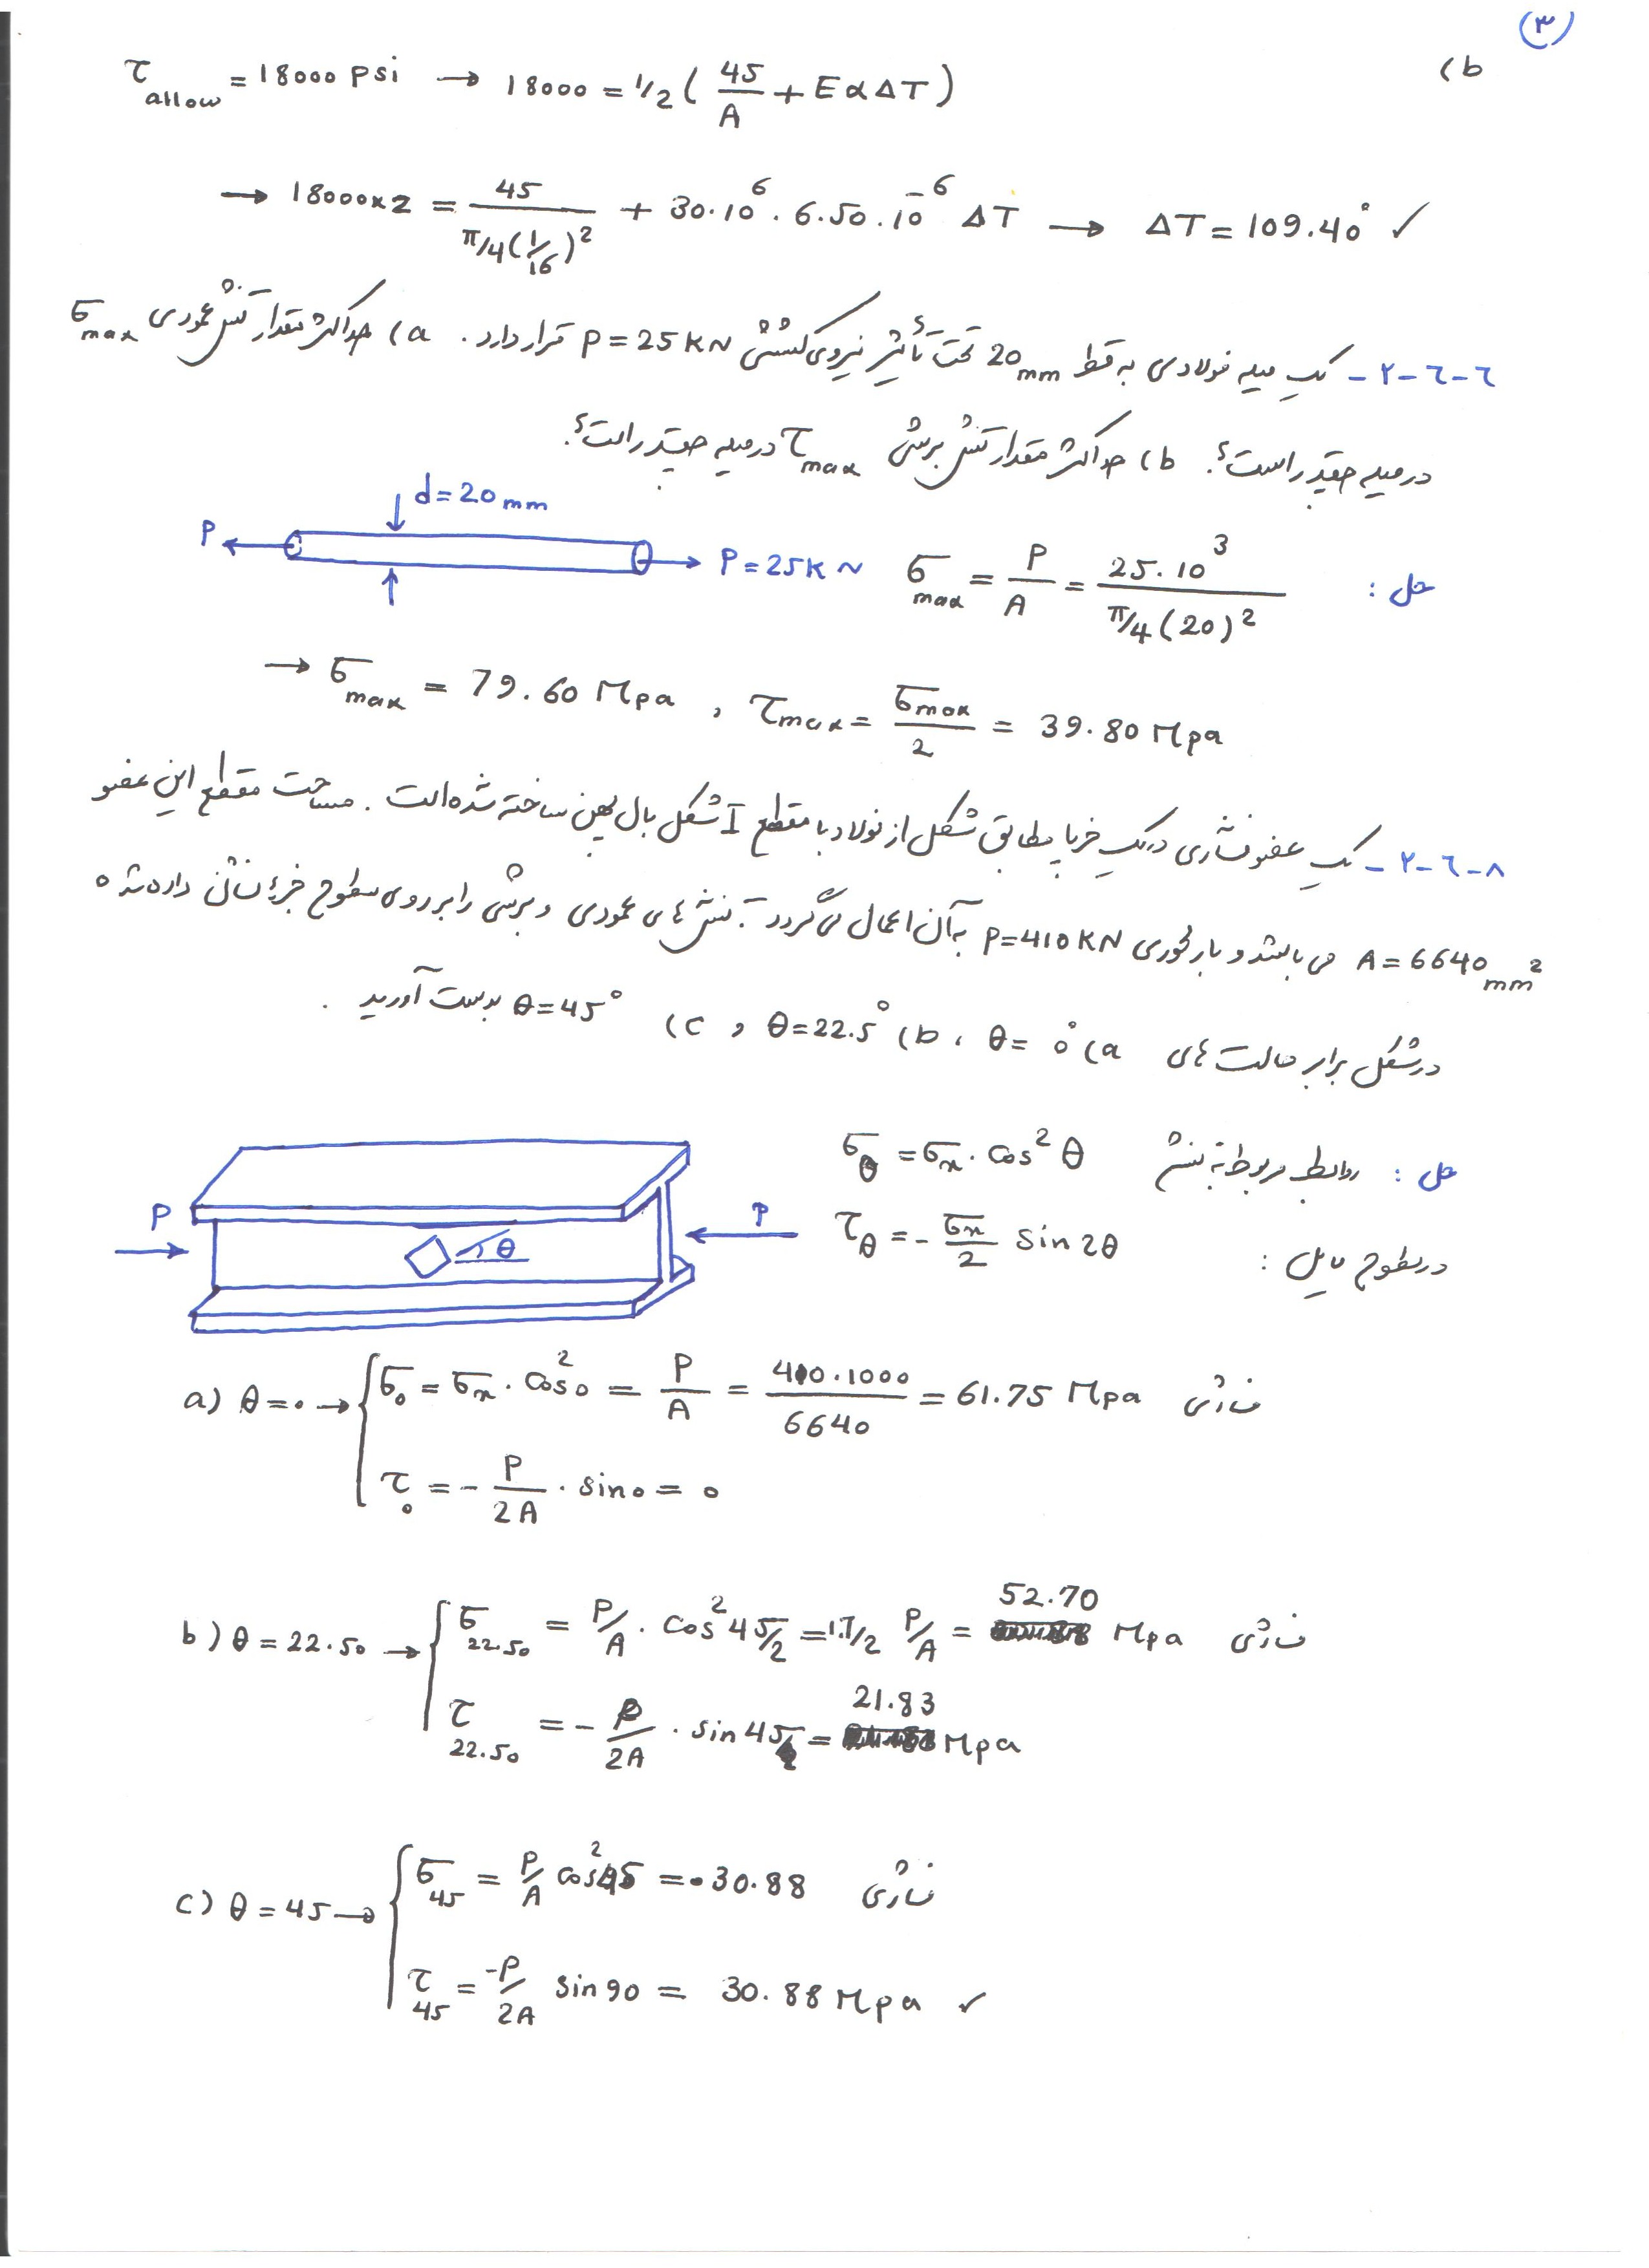 ۳
b)
τ allow = 18000 psi → 18000 = 1/2 ( 45/A + EαΔT )
→ 18000×2 = 45 / π/4(1/16)² + 30.10⁶ . 6.50.10⁻⁶ ΔT → ΔT = 109.40° ✓
۲-۶-۶- یک میله فولادی به قطر 20mm تحت تأثیر نیروی کششی P=25KN قرار دارد. a) حداکثر مقدار تنش عمودی σmax
در میله چقدر است؟ b) حداکثر مقدار تنش برشی τmax در میله چقدر است؟
d=20mm
P
P=25KN
حل : σmax = P/A = 25.10³ / π/4(20)²
→ σmax = 79.60 Mpa , τmax = σmax/2 = 39.80 Mpa
۲-۶-۸- یک عضو فشاری در یک خرپا مطابق شکل از فولاد با مقطع I شکل بال پهن ساخته شده است. مساحت مقطع این عضو
A=6640mm² می باشد و بار محوری P=410KN به آن اعمال می گردد. تنش های عمودی و برشی را بر روی سطوح جزء نشان داده شده
در شکل برای حالت های a) θ=0° ، b) θ=22.5° و c) θ=45° بدست آورید .
حل : روابط مربوط به تنش σθ = σx . cos²θ
در سطوح مایل : τθ = - σx/2 sin2θ
P
θ
P
a) θ=0 → σ0 = σx . cos²0 = P/A = 410.1000/6640 = 61.75 Mpa فشاری
τ0 = - P/2A . sin0 = 0
b) θ=22.50 → σ22.50 = P/A . cos²45/2 = 1.7/2 P/A = 52.70 Mpa فشاری
τ22.50 = - P/2A . sin45 = 21.83 Mpa
c) θ=45 → σ45 = P/A cos²45 = 30.88 فشاری
τ45 = -P/2A sin90 = 30.88 Mpa ✓